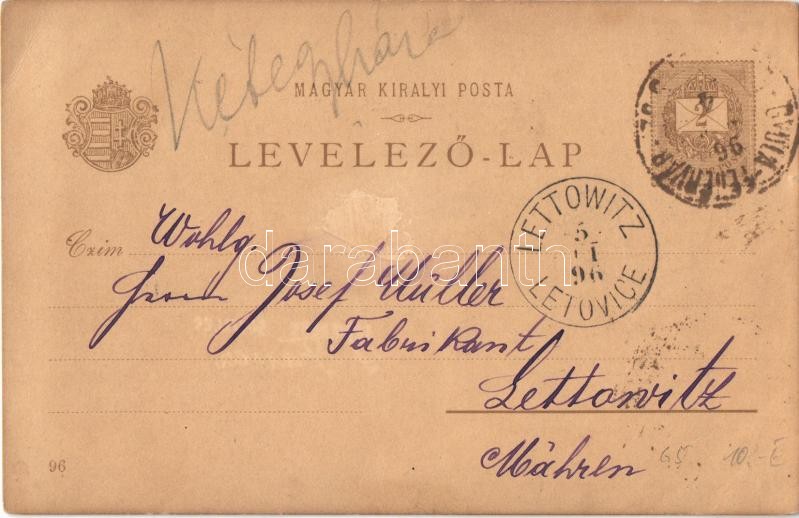 Kétegyháza
MAGYAR KIRALYI POSTA
LEVELEZŐ-LAP
2
96
GYULA-FEHÉRVÁR
LETTOWITZ
5
11
96
LETOVICE
Czim
Wohlg.
Herrn Josef Müller
Fabrikant
Lettowitz
Mähren
darabanth
96
65 10.-E